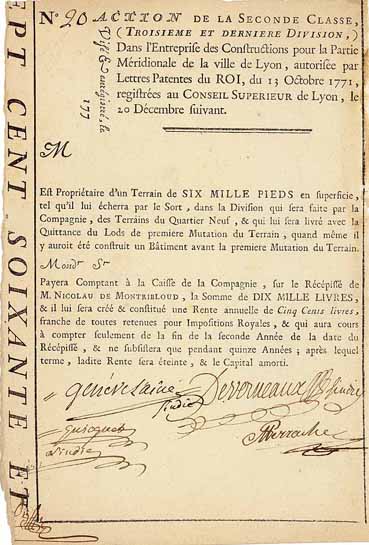 N° 20 ACTION DE LA SECONDE CLASSE,
(TROISIEME ET DERNIERE DIVISION,)
Dans l'Entreprise des Constructions pour la Partie
Méridionale de la ville de Lyon, autorisée par
Lettres Patentes du ROI, du 13 Octobre 1771,
registrées au CONSEIL SUPERIEUR de Lyon, le
20 Décembre suivant.
177
M
EST Propriétaire d'un Terrain de SIX MILLE PIEDS en superficie,
tel qu'il lui écherra par le Sort, dans la Division qui sera faite par la
Compagnie, des Terrains du Quartier Neuf, & qui lui sera livré avec la
Quittance du Lods de premiere Mutation du Terrain, quand même il
y auroit été construit un Bâtiment avant la premiere Mutation du Terrain.
Mond. Sr
Payera Comptant à la Caisse de la Compagnie, sur le Récépissé de
M. NICOLAU DE MONTRIBLOUD, la Somme de DIX MILLE LIVRES,
& il lui sera créé & constitué une Rente annuelle de Cinq Cents livres,
franche de toutes retenues pour Impositions Royales, & qui aura cours
à compter seulement de la fin de la seconde Année de la date du
Récépissé, & ne subsistera que pendant quinze Années; après lequel
terme, ladite Rente sera éteinte, & le Capital amorti.
Sindic
Perrache
Sindic
EPT CENT SOIXANTE ET